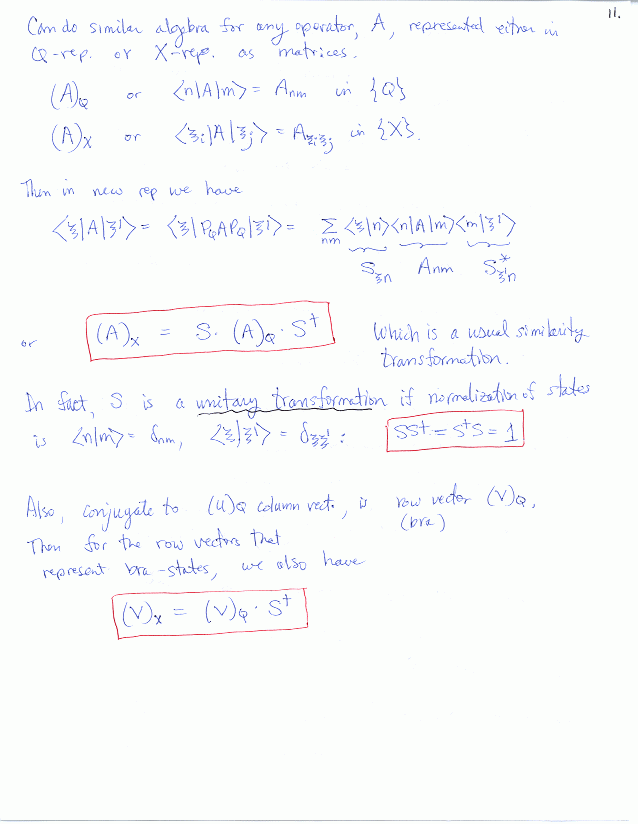 11.
Can do similar algebra for any operator, A, represented either in
Q-rep. or X-rep. as matrices.
(A)_Q or <n|A|m> = A_nm in {Q}
(A)_X or <ξ_i|A|ξ_j> = A_ξiξj in {X}.
Then in new rep we have
<ξ|A|ξ'> = <ξ|P_Q A P_Q|ξ'> = Σ_nm <ξ|n><n|A|m><m|ξ'>
S_ξn A_nm S*_ξ'n
or (A)_X = S · (A)_Q · S† Which is a usual similarity
transformation.
In fact, S is a unitary transformation if normalization of states
is <n|m> = δ_nm, <ξ|ξ'> = δ_ξξ' : SS† = S†S = 1
Also, conjugate to (U)_Q column vect., is row vector (V)_Q,
(bra)
Then for the row vectors that
represent bra-states, we also have
(V)_X = (V)_Q · S†